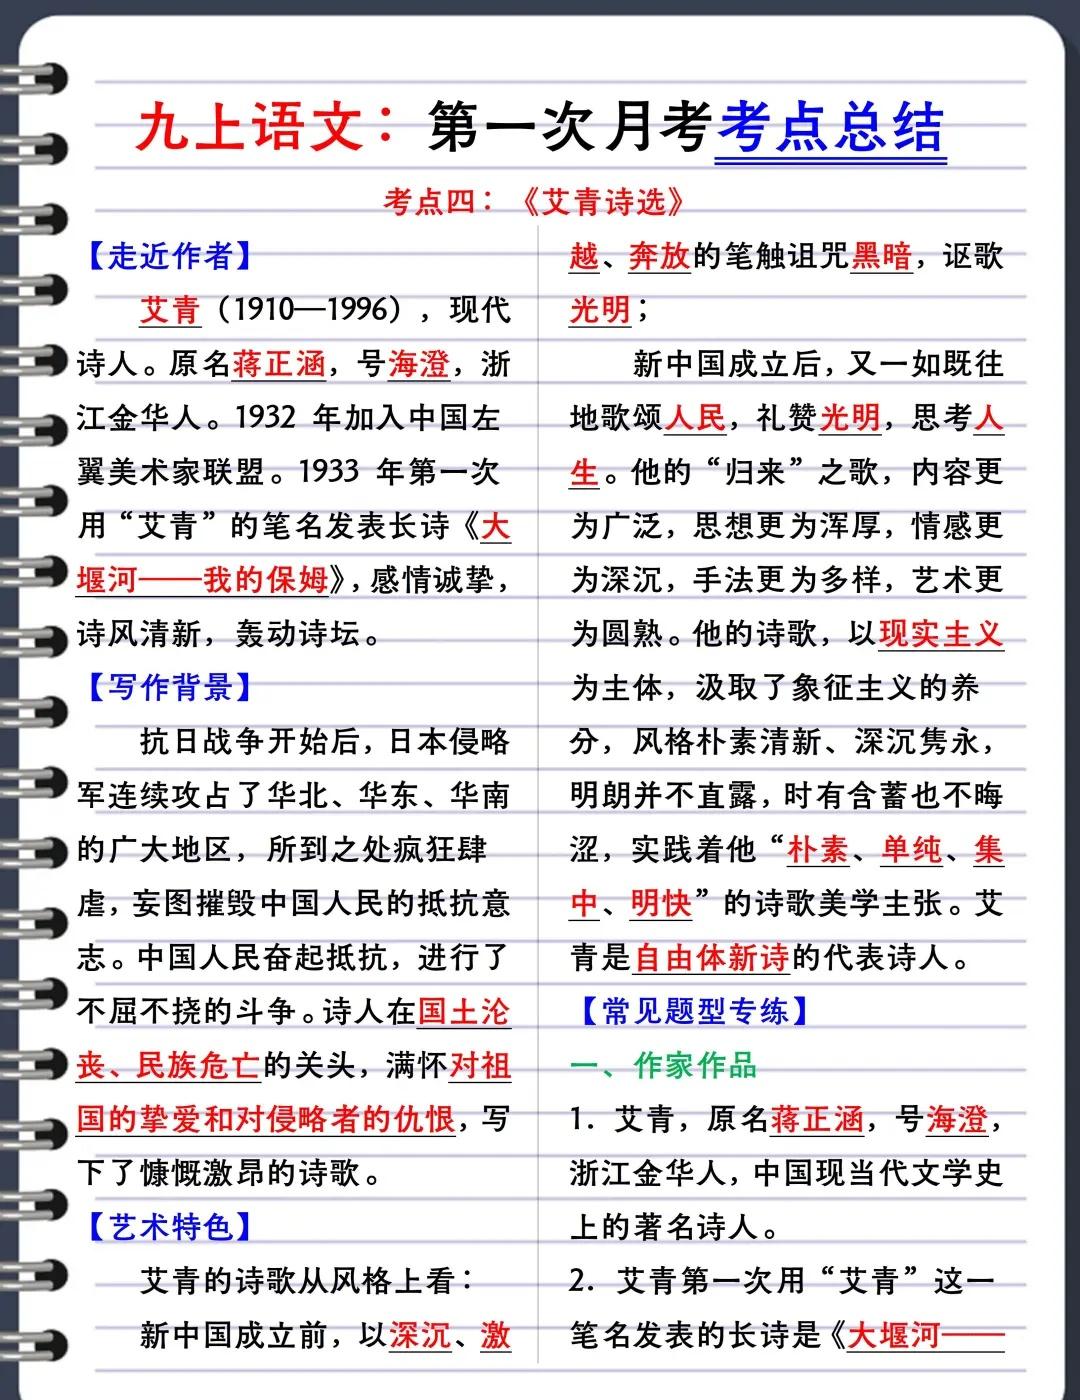 九上语文：第一次月考考点总结
考点四：《艾青诗选》
【走近作者】
艾青（1910—1996），现代
诗人。原名蒋正涵，号海澄，浙
江金华人。1932 年加入中国左
翼美术家联盟。1933 年第一次
用“艾青”的笔名发表长诗《大
堰河——我的保姆》，感情诚挚，
诗风清新，轰动诗坛。
【写作背景】
抗日战争开始后，日本侵略
军连续攻占了华北、华东、华南
的广大地区，所到之处疯狂肆
虐，妄图摧毁中国人民的抵抗意
志。中国人民奋起抵抗，进行了
不屈不挠的斗争。诗人在国土沦
丧、民族危亡的关头，满怀对祖
国的挚爱和对侵略者的仇恨，写
下了慷慨激昂的诗歌。
【艺术特色】
艾青的诗歌从风格上看：
新中国成立前，以深沉、激
越、奔放的笔触诅咒黑暗，讴歌
光明；
新中国成立后，又一如既往
地歌颂人民，礼赞光明，思考人
生。他的“归来”之歌，内容更
为广泛，思想更为浑厚，情感更
为深沉，手法更为多样，艺术更
为圆熟。他的诗歌，以现实主义
为主体，汲取了象征主义的养
分，风格朴素清新、深沉隽永，
明朗并不直露，时有含蓄也不晦
涩，实践着他“朴素、单纯、集
中、明快”的诗歌美学主张。艾
青是自由体新诗的代表诗人。
【常见题型专练】
一、作家作品
1. 艾青，原名蒋正涵，号海澄，
浙江金华人，中国现当代文学史
上的著名诗人。
2. 艾青第一次用“艾青”这一
笔名发表的长诗是《大堰河——